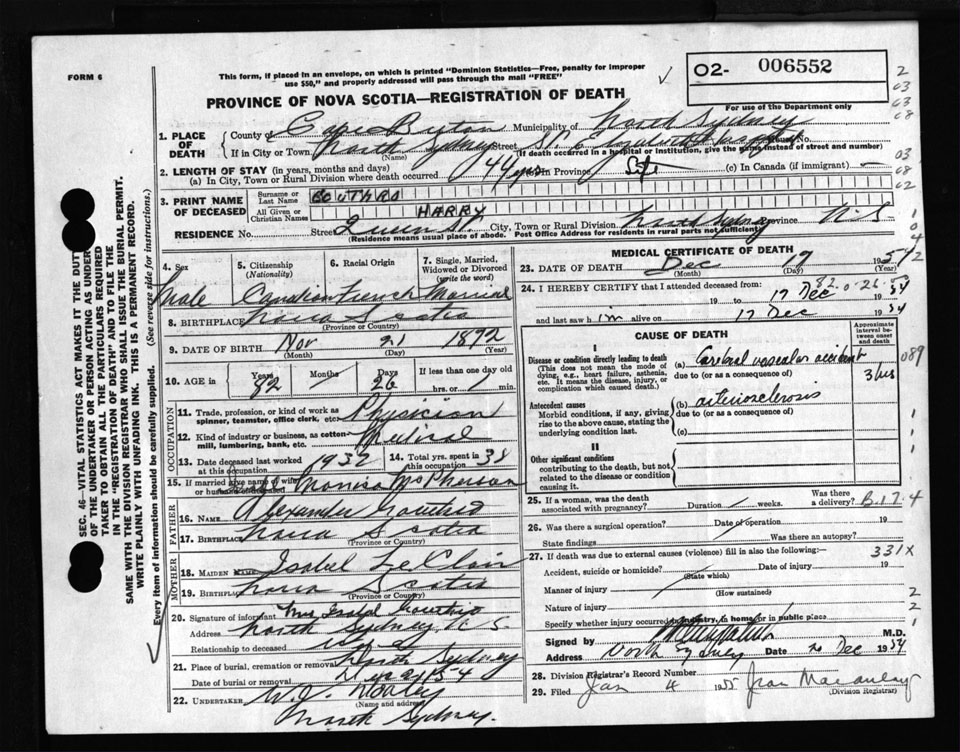 FORM 6
This form, if placed in an envelope, on which is printed "Dominion Statistics—Free, penalty for improper
use $50," and properly addressed will pass through the mail "FREE"
02- 006552
For use of the Department only
PROVINCE OF NOVA SCOTIA—REGISTRATION OF DEATH
1. PLACE OF DEATH
County of Cape Breton Municipality of North Sydney
If in City or Town North Sydney Street St. House No.
(Name) (If death occurred in a hospital or institution, give the name instead of street and number)
2. LENGTH OF STAY (in years, months and days)
(a) In City, Town or Rural Division where death occurred 44 yrs in Province Life (c) In Canada (if immigrant) —
3. PRINT NAME OF DECEASED
Surname or Last Name GOUTHRO
All Given or Christian Names HARRY
RESIDENCE No. Street Queen St. City, Town or Rural Division North Sydney Province N.S.
(Residence means usual place of abode. Post Office Address for residents in rural parts not sufficient)
4. Sex Male
5. Citizenship (Nationality) Canadian
6. Racial Origin French
7. Single, Married, Widowed or Divorced (write the word) Married
8. BIRTHPLACE Nova Scotia
(Province or Country)
9. DATE OF BIRTH Nov 21 1872
(Month) (Day) (Year)
10. AGE in Years 82 Months Days 26 If less than one day old hrs. or min.
OCCUPATION
11. Trade, profession, or kind of work as spinner, teamster, office clerk, etc. Physician
12. Kind of industry or business, as cotton-mill, lumbering, bank, etc. Medical
13. Date deceased last worked at this occupation 1937
14. Total yrs. spent in this occupation 38
15. If married give name of wife or husband of deceased Monica McPherson
FATHER
16. Name Alexander Gouthro
17. Birthplace Nova Scotia
(Province or Country)
MOTHER
18. Maiden Name Isabel LeClair
19. Birthplace Nova Scotia
(Province or Country)
20. Signature of informant Mrs Gouthro
Address North Sydney N.S.
Relationship to deceased
21. Place of burial, cremation or removal North Sydney
Date of burial or removal
22. UNDERTAKER W.J. Dooley
(Name and address)
North Sydney.
MEDICAL CERTIFICATE OF DEATH
23. DATE OF DEATH Dec 17 1954
(Month) (Day) (Year)
24. I HEREBY CERTIFY that I attended deceased from:
19 to 17 Dec 1954
and last saw him alive on 17 Dec 1954
CAUSE OF DEATH
Approximate interval between onset and death
I
Disease or condition directly leading to death
(This does not mean the mode of dying, e.g., heart failure, asthenia, etc. It means the disease, injury, or complication which caused death.)
(a) Cerebral vascular accident
due to (or as a consequence of)
3 hrs
089
Antecedent causes
Morbid conditions, if any, giving rise to the above cause, stating the underlying condition last.
(b) arteriosclerosis
due to (or as a consequence of)
(c)
II
Other significant conditions
contributing to the death, but not related to the disease or condition causing it.
25. If a woman, was the death associated with pregnancy? Duration weeks. Was there a delivery? B.17.4
26. Was there a surgical operation? Date of operation 19
State findings Was there an autopsy?
27. If death was due to external causes (violence) fill in also the following:— 331X
Accident, suicide or homicide? Date of injury 19
(State which)
Manner of injury
(How sustained)
Nature of injury
Specify whether injury occurred in industry, in home, or in public place
Signed by M.D.
Address North Sydney Date 20 Dec 1954
28. Division Registrar's Record Number
29. Filed Jan 4 1955 Jean Macaulay
(Division Registrar)
SEC. 46—VITAL STATISTICS ACT MAKES IT THE DUTY
OF THE UNDERTAKER OR PERSON ACTING AS UNDER-
TAKER TO OBTAIN ALL THE PARTICULARS REQUIRED
IN THE "REGISTRATION OF DEATH" AND TO FILE THE
SAME WITH THE DIVISION REGISTRAR WHO SHALL ISSUE THE BURIAL PERMIT.
WRITE PLAINLY WITH UNFADING INK. THIS IS A PERMANENT RECORD.
Every item of information should be carefully supplied. (See reverse side for instructions.)